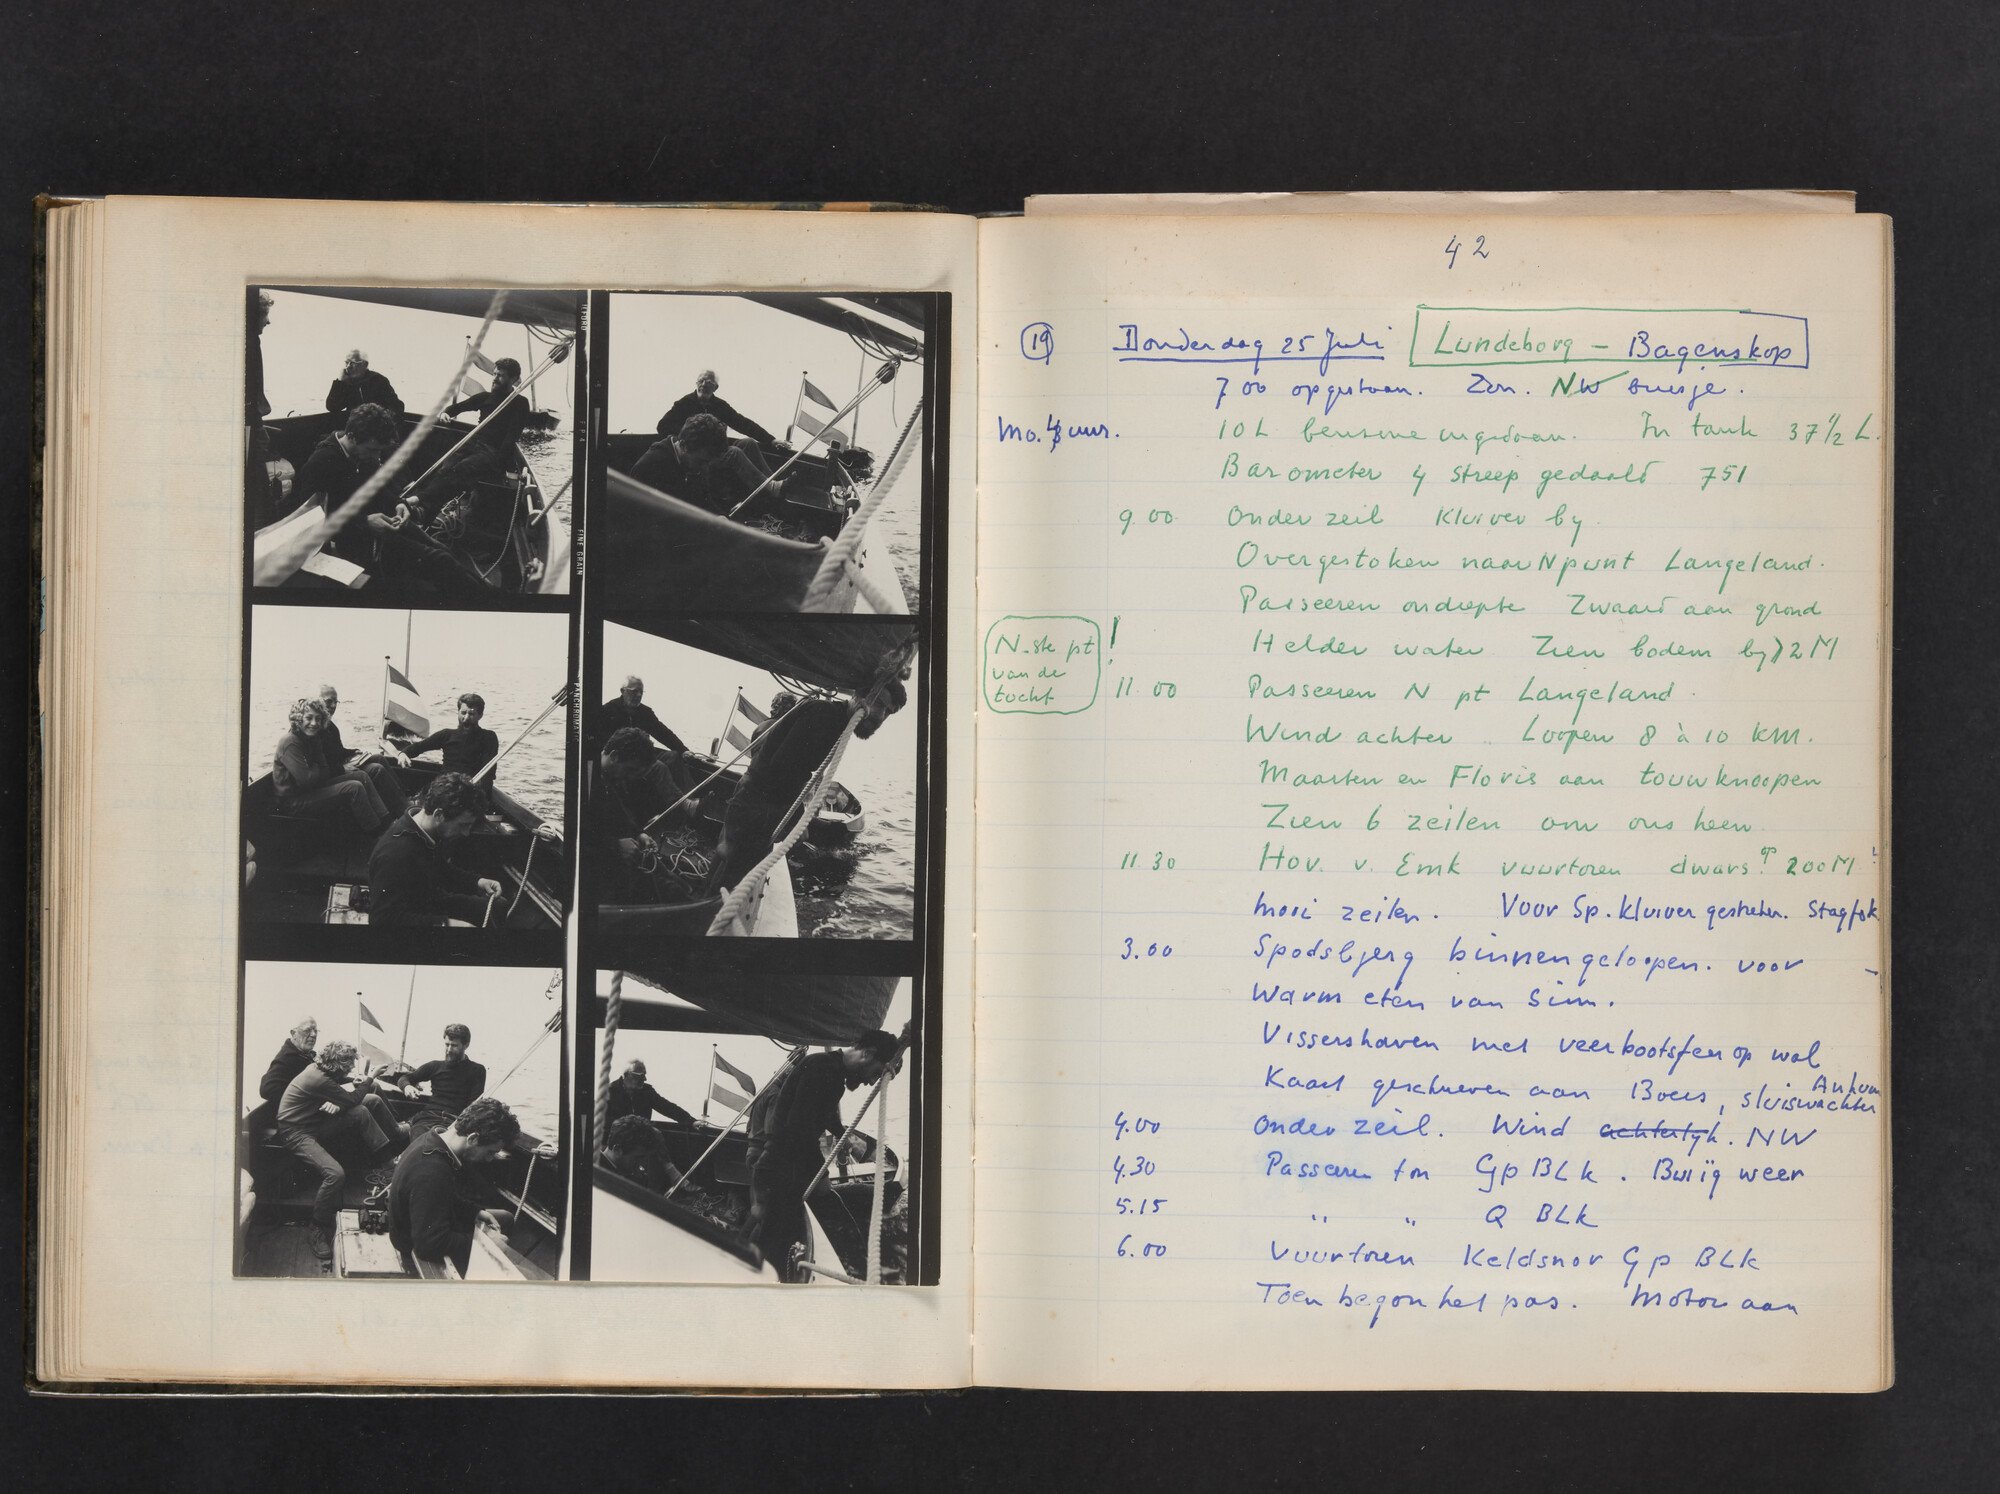 ILFORD
FINE GRAIN
42
19 Donderdag 25 Juli Lundeborg – Bagenskop
7 00 opgestaan. Zon. NW briesje.
Mo. uur. 10 L benzine ingedaan. In tank 37 1/2 L.
Barometer 4 streep gedaald 751
9.00 Onder zeil Kluiver by
Overgestoken naar N punt Langeland.
Passeeren ondiepte Zwaard aan grond
Helder water Zien bodem by > 2 M
N-ste pt van de tocht !
11.00 Passeeren N pt Langeland.
Wind achter Loopen 8 à 10 KM.
Maarten en Floris aan touwknoopen
Zien 6 zeilen om ons heen.
11.30 Hov. v. Emk vuurtoren dwars op 200 M !
Mooi zeilen. Voor Sp. kluiver gestreken. Stagfok
3.00 Spodsbjerg binnengeloopen. voor –
Warm eten van Siem.
Vissershaven met veerbootsfeer op wal
Kaart geschreven aan Boers, sluiswachter
4.00 Onder zeil. Wind achterlijk. NW
4.30 Passeeren ton Gp BLk. Buiïg weer
5.15 " " Q BLk
6.00 Vuurtoren Keldsnor Gp BLk
Toen begon het pas. Motor aan